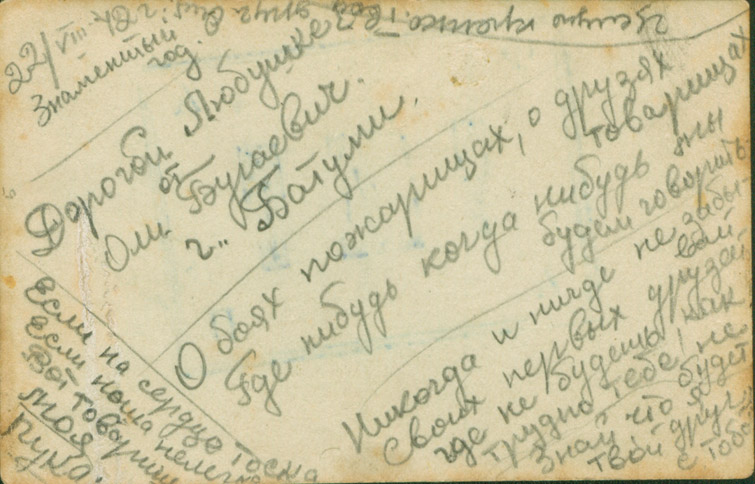 22/VIII
Знаменитый
год.
Целую крепко твой друг
Дорогой Любушке
от
Оли Бугаевич.
г. Батуми.
О боях пожарищах, о друзях
товарищах
Где нибудь когда нибудь мы
будем говорить
Никогда и нигде не забы
вай
своих первых друзей
где не будешь, как
трудно тебе, не
Знай что я будет
твой друг
с тобо
Если на сердце тоска
Если ноша нелегка
Вот товарищ
моя
рука.